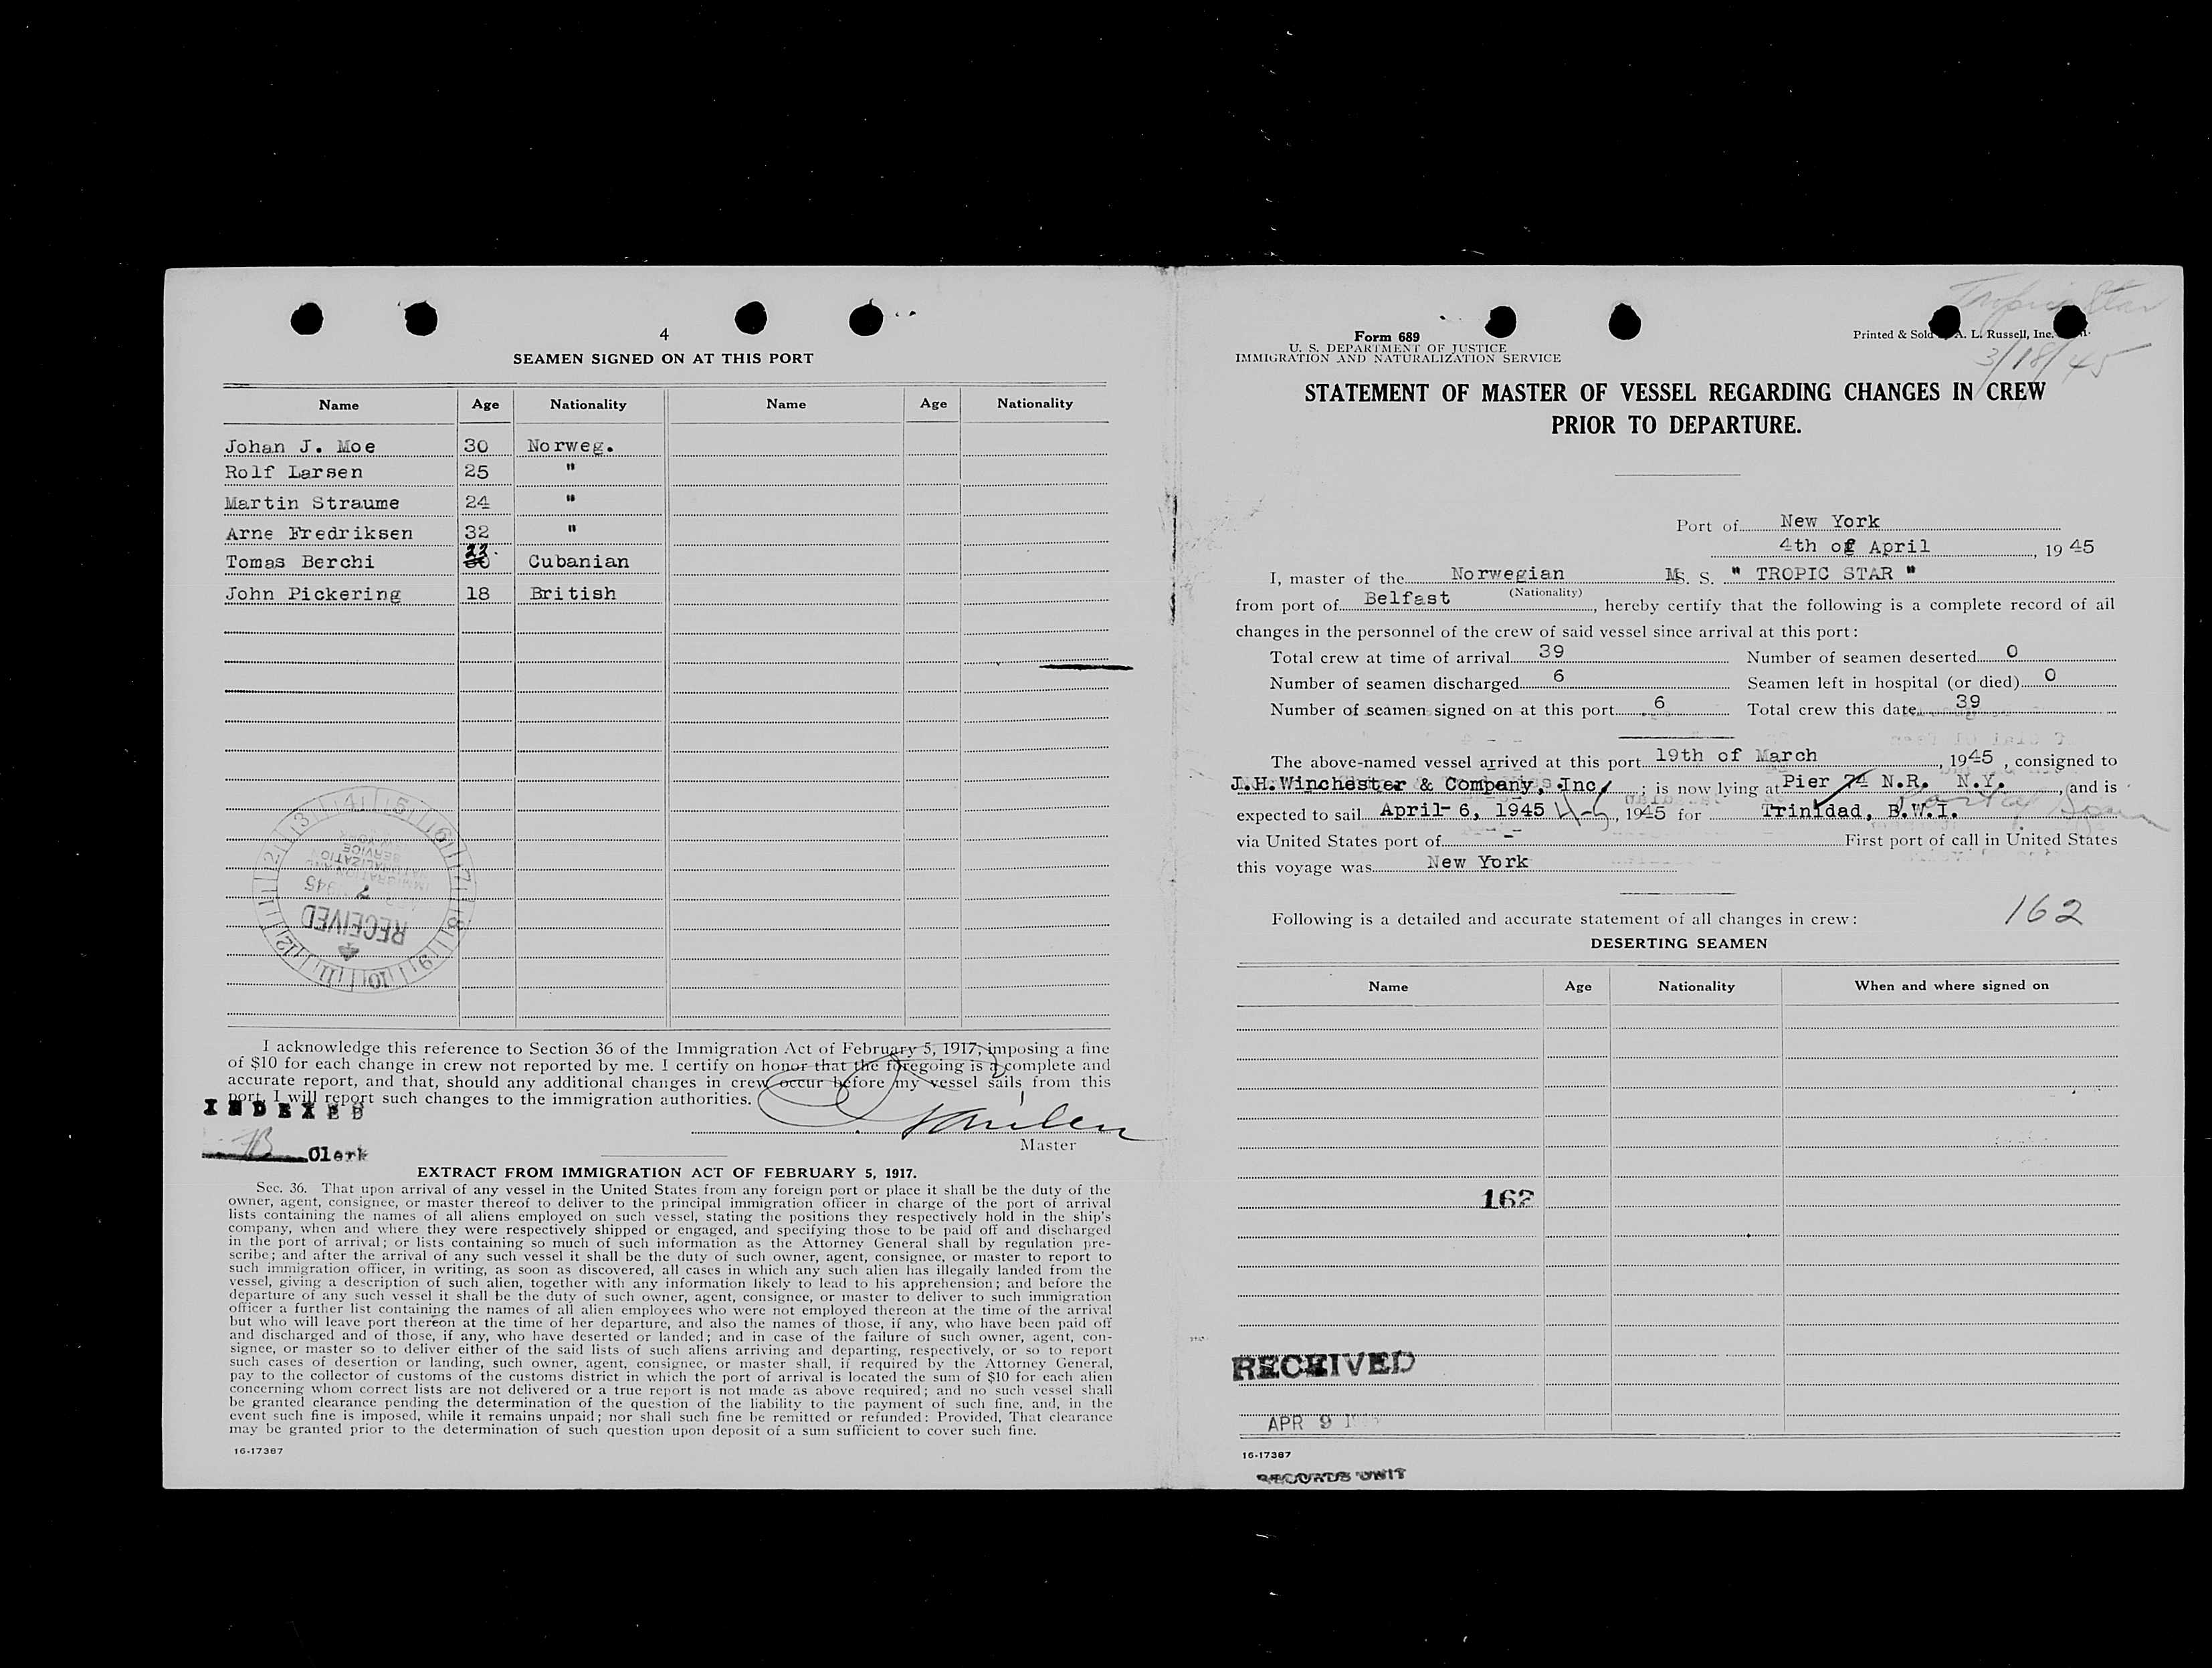 4
SEAMEN SIGNED ON AT THIS PORT
Name Age Nationality Name Age Nationality
Johan J. Moe 30 Norweg.
Rolf Larsen 25 "
Martin Straume 24 "
Arne Fredriksen 32 "
Tomas Berchi 33 Cubanian
John Pickering 18 British
RECEIVED
I acknowledge this reference to Section 36 of the Immigration Act of February 5, 1917, imposing a fine
of $10 for each change in crew not reported by me. I certify on honor that the foregoing is a complete and
accurate report, and that, should any additional changes in crew occur before my vessel sails from this
port, I will report such changes to the immigration authorities.
INDEXED
Clerk
Master
EXTRACT FROM IMMIGRATION ACT OF FEBRUARY 5, 1917.
Sec. 36. That upon arrival of any vessel in the United States from any foreign port or place it shall be the duty of the
owner, agent, consignee, or master thereof to deliver to the principal immigration officer in charge of the port of arrival
lists containing the names of all aliens employed on such vessel, stating the positions they respectively hold in the ship's
company, when and where they were respectively shipped or engaged, and specifying those to be paid off and discharged
in the port of arrival; or lists containing so much of such information as the Attorney General shall by regulation pre-
scribe; and after the arrival of any such vessel it shall be the duty of such owner, agent, consignee, or master to report to
such immigration officer, in writing, as soon as discovered, all cases in which any such alien has illegally landed from the
vessel, giving a description of such alien, together with any information likely to lead to his apprehension; and before the
departure of any such vessel it shall be the duty of such owner, agent, consignee, or master to deliver to such immigration
officer a further list containing the names of all alien employees who were not employed thereon at the time of the arrival
but who will leave port thereon at the time of her departure, and also the names of those, if any, who have been paid off
and discharged and of those, if any, who have deserted or landed; and in case of the failure of such owner, agent, con-
signee, or master so to deliver either of the said lists of such aliens arriving and departing, respectively, or so to report
such cases of desertion or landing, such owner, agent, consignee, or master shall, if required by the Attorney General,
pay to the collector of customs of the customs district in which the port of arrival is located the sum of $10 for each alien
concerning whom correct lists are not delivered or a true report is not made as above required; and no such vessel shall
be granted clearance pending the determination of the question of the liability to the payment of such fine, and, in the
event such fine is imposed, while it remains unpaid; nor shall such fine be remitted or refunded: Provided, That clearance
may be granted prior to the determination of such question upon deposit of a sum sufficient to cover such fine.
16-17387
Tropic Star
Form 689
U. S. DEPARTMENT OF JUSTICE
IMMIGRATION AND NATURALIZATION SERVICE
Printed & Sold A. L. Russell, Inc.
3/18/45
STATEMENT OF MASTER OF VESSEL REGARDING CHANGES IN CREW
PRIOR TO DEPARTURE.
Port of New York
4th of April, 19 45
I, master of the Norwegian M.S. S. " TROPIC STAR "
(Nationality)
from port of Belfast, hereby certify that the following is a complete record of all
changes in the personnel of the crew of said vessel since arrival at this port:
Total crew at time of arrival 39 Number of seamen deserted 0
Number of seamen discharged 6 Seamen left in hospital (or died) 0
Number of seamen signed on at this port 6 Total crew this date 39
The above-named vessel arrived at this port 19th of March, 1945, consigned to
J.H.Winchester & Company, Inc.; is now lying at Pier 74 N.R. N.Y., and is
expected to sail April- 6, 1945 4-5, 1945 for Trinidad, B.W.I. Port of Spain
via United States port of - First port of call in United States
this voyage was New York
162
Following is a detailed and accurate statement of all changes in crew:
DESERTING SEAMEN
Name Age Nationality When and where signed on
162
RECEIVED
APR 9
16-17387
RECORDS UNIT